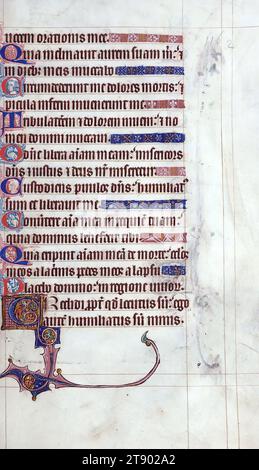 uocem orationis mee.
Quia inclinauit aurem suam m: et
in dieb; meis inuocabo
Circumdederunt me dolores mortis: et
picula inferni inuenerunt me
Tribulacōem et dolorem inueni: et no
men domini inuocaui
O dn̄e libera aīam meam: misericors
dn̄s et iustus et deus nr̄ miseretur
Custodiens puulos dn̄s: humiliat
sum et liberauit me
Conuertere aīa mea in requiem tuam:
quia dominus benefec tibi
Quia eripuit aīam meā de morte: oclo
meos a lacrimis pedes meos a lapsu
Placebo domino: in regione uiuor
Credidi ppt̄ qd̄ locutus sū: ego
autē humiliatus sū nimis.
alamy
Image ID: 2T902A2
www.alamy.com